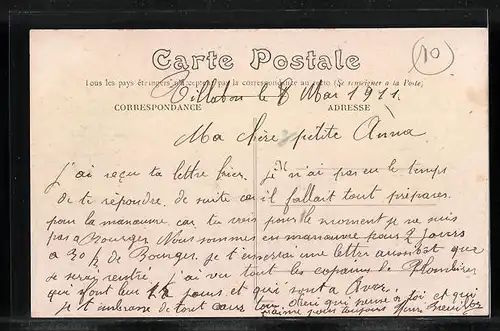 Carte Postale
10
Tous les pays étrangers n'acceptent pas la correspondance au recto (Se renseigner à la Poste)
Villabon le 8 Mai 1911
CORRESPONDANCE ADRESSE
Ma chère petite Anna
J'ai reçu ta lettre hier. Je n'ai pas eu le temps
De te répondre de suite car il fallait tout préparer
pour la manœuvre car tu vois pour le moment je ne suis
pas à Bourges Nous sommes en manœuvre pour 2 jours
à 30 k de Bourges. je t'enverrai une lettre aussitôt que
je serai rentré. j'ai vu tout les copains de Plombières
qui font leur jours et qui sont à Avor.
je t'embrasse de tout cœur ton chéri qui pense à toi et qui
t'aime pour toujours